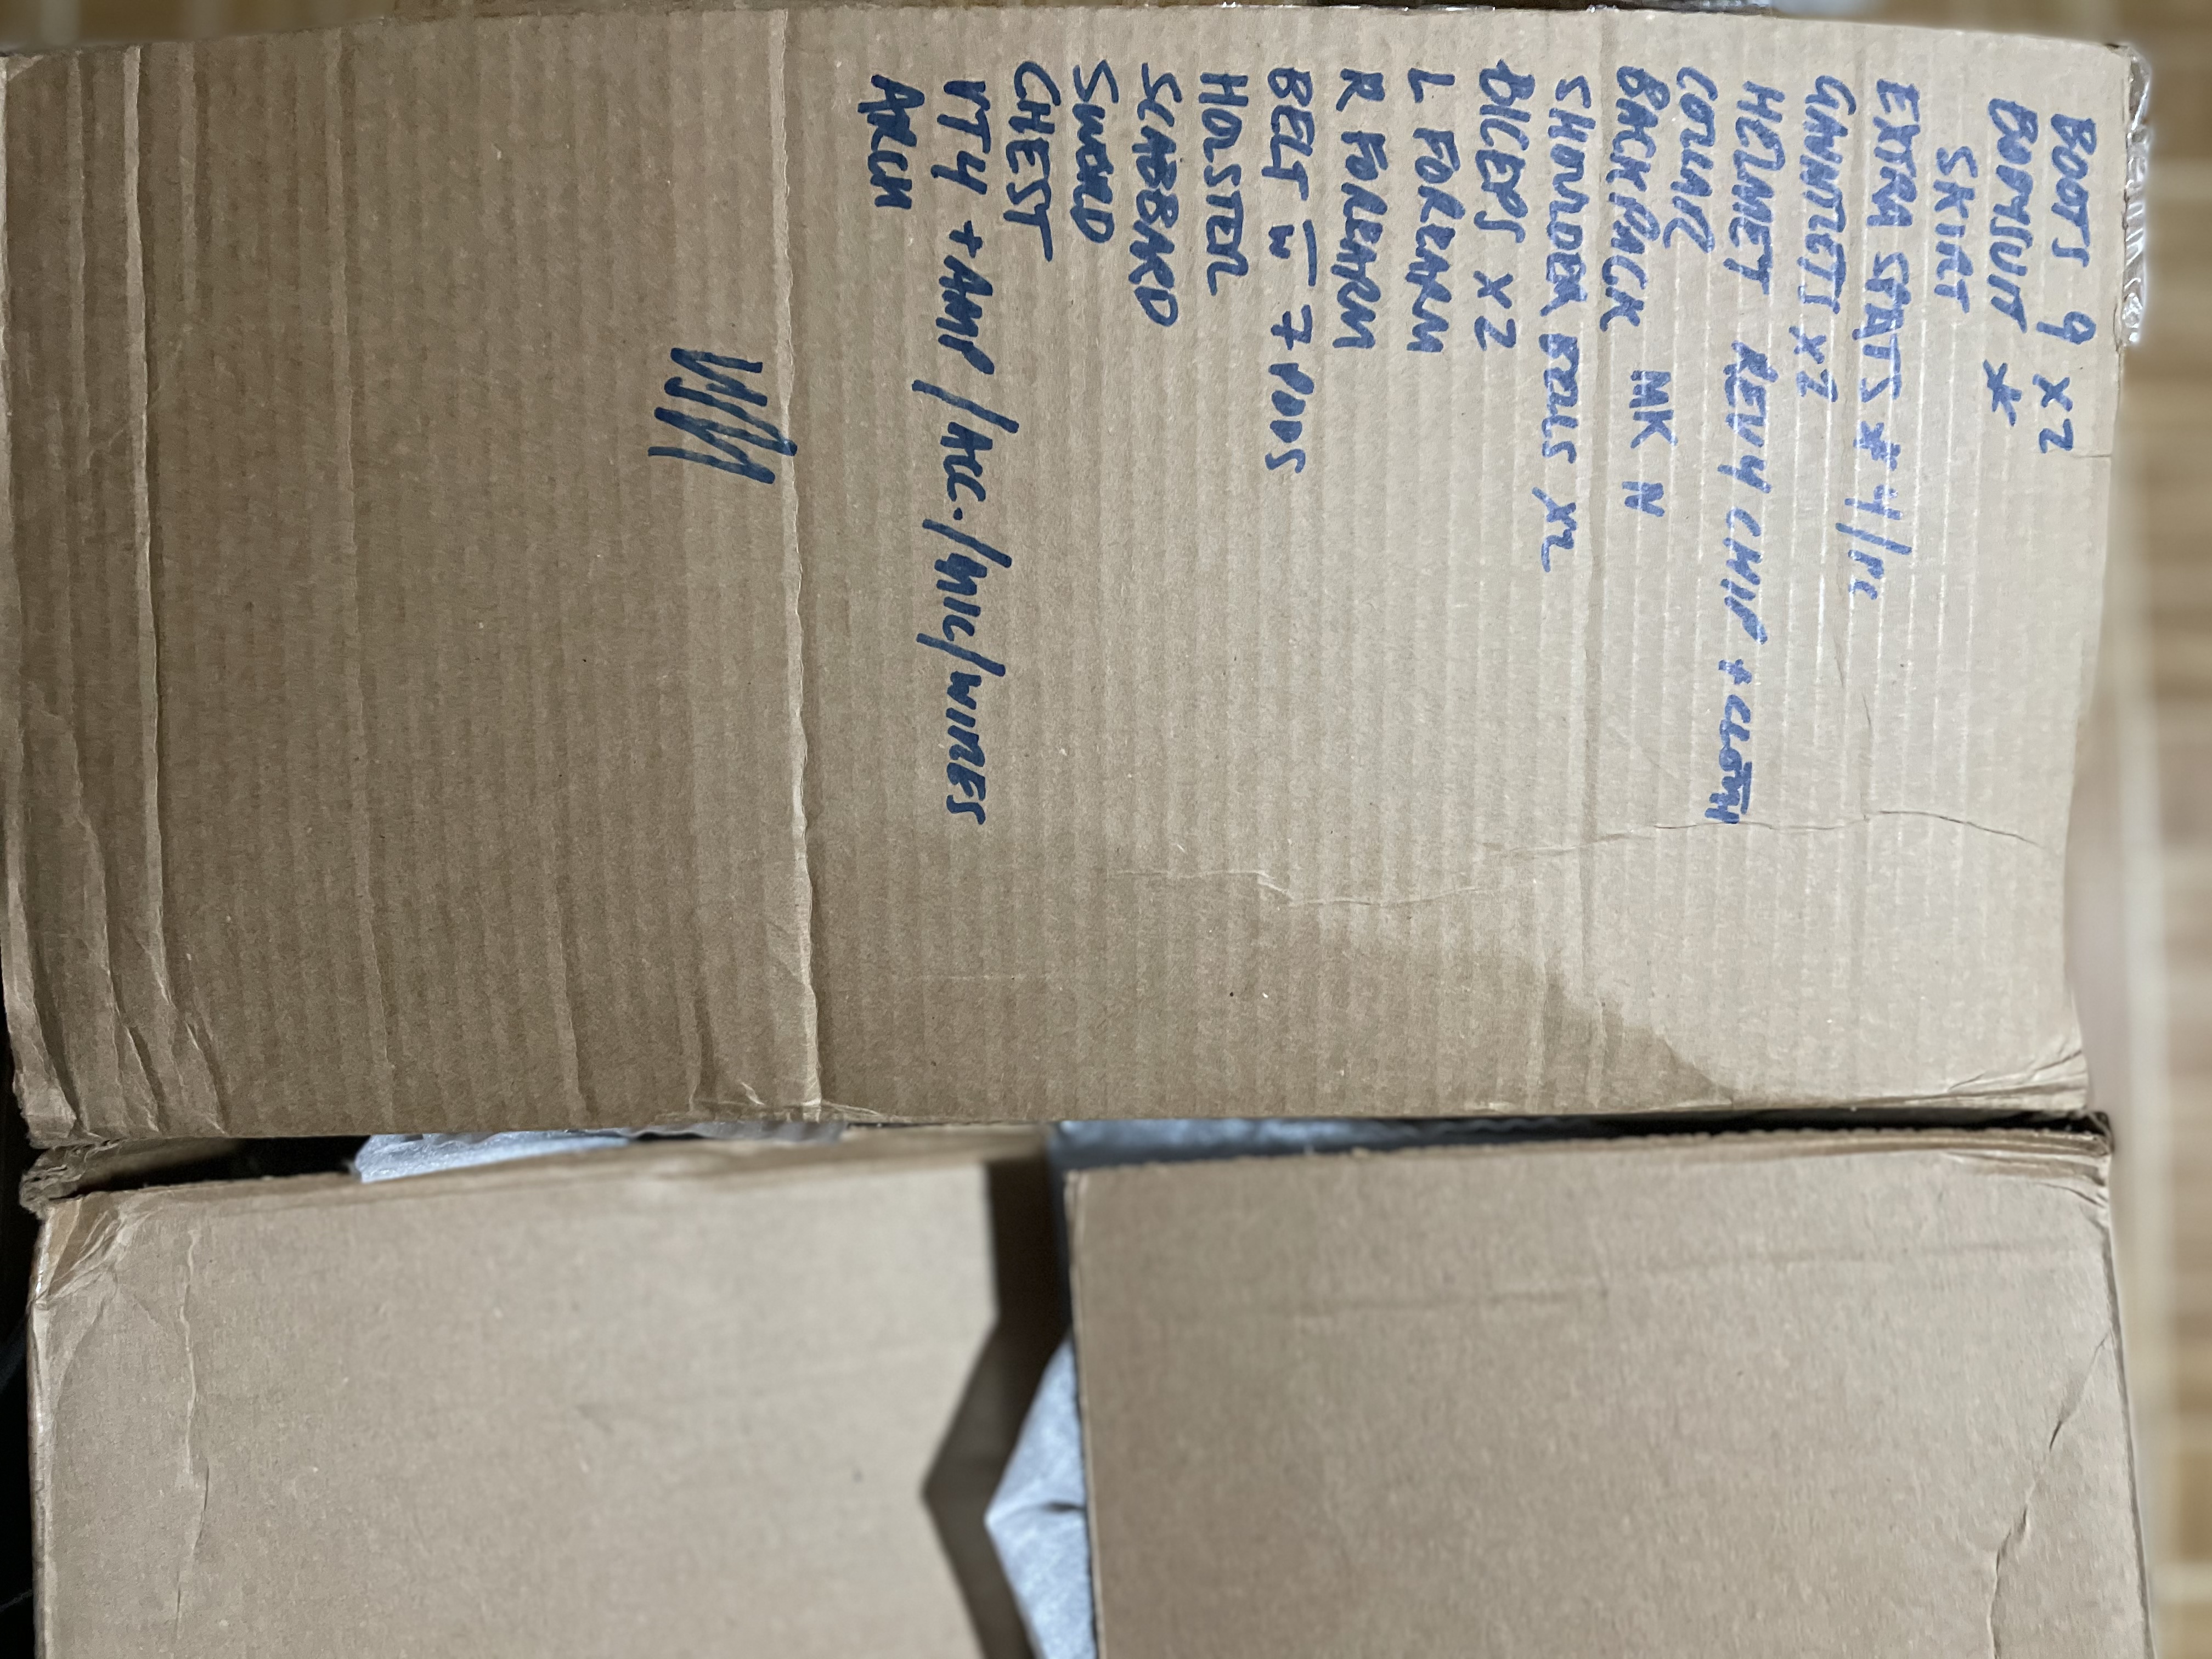 BOOTS 9 X2
BODYSUIT *
SKIRT
EXTRA * 4/PC
GAUNTLETS X2
HELMET REV 4 CHIP + CLOTH
COLLAR
BACKPACK MK N
SHOULDER BELLS X2
BICEPS X2
L FOREARM
R FOREARM
BELT W̄ 7 PODS
HOLSTER
SCABBARD
SWORD
CHEST
VT4 + AMP/ACC./MIC/WIRES
ARCH